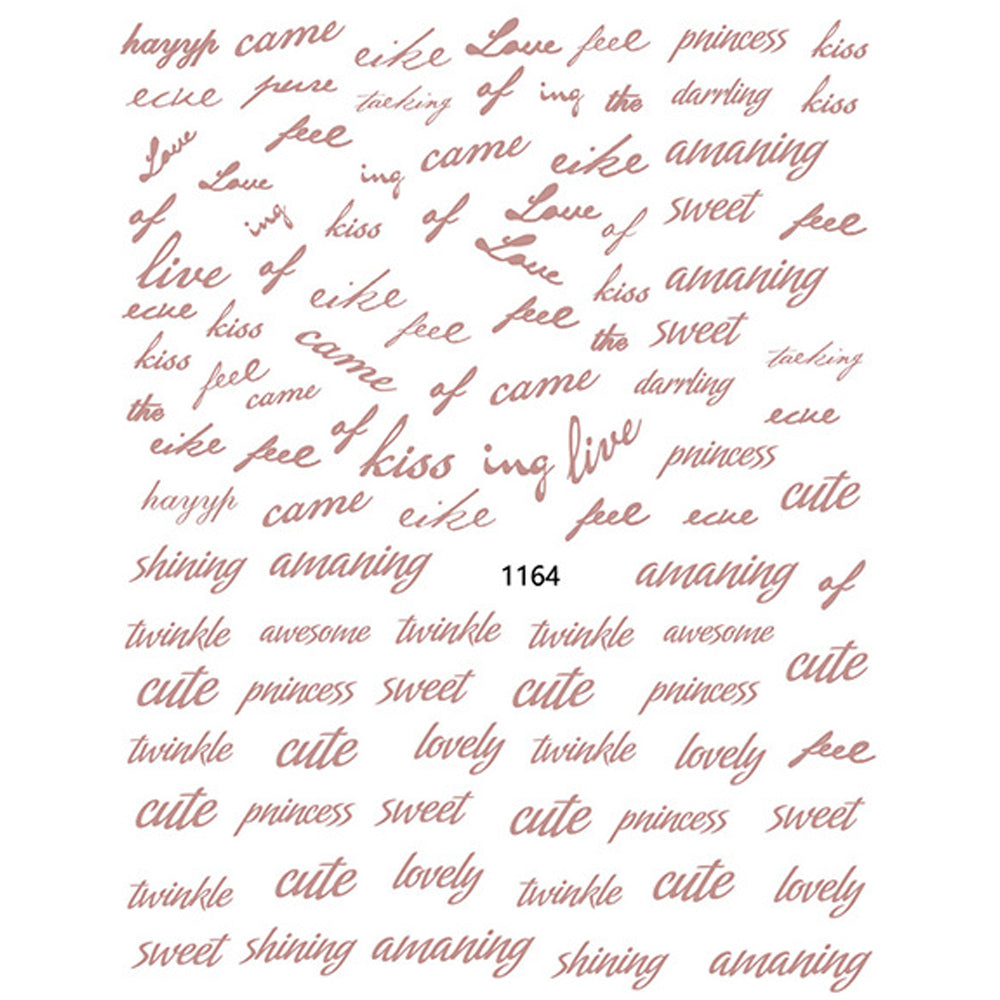 hayyp came eike Love feel pnincess kiss
ecue pure taeking of ing the darrling kiss
Love feel ing came eike amaning
Love
of ing kiss of Love of sweet feel
live of eike Love kiss amaning
ecue kiss feel feel the sweet
kiss feel came came of came darrling taeking
the ecue
eike feel of kiss ing live pnincess
hayyp came eike feel ecue cute
shining amaning 1164 amaning of
twinkle awesome twinkle twinkle awesome
cute pnincess sweet cute pnincess cute
twinkle cute lovely twinkle lovely feel
cute pnincess sweet cute pnincess sweet
twinkle cute lovely twinkle cute lovely
sweet shining amaning shining amaning